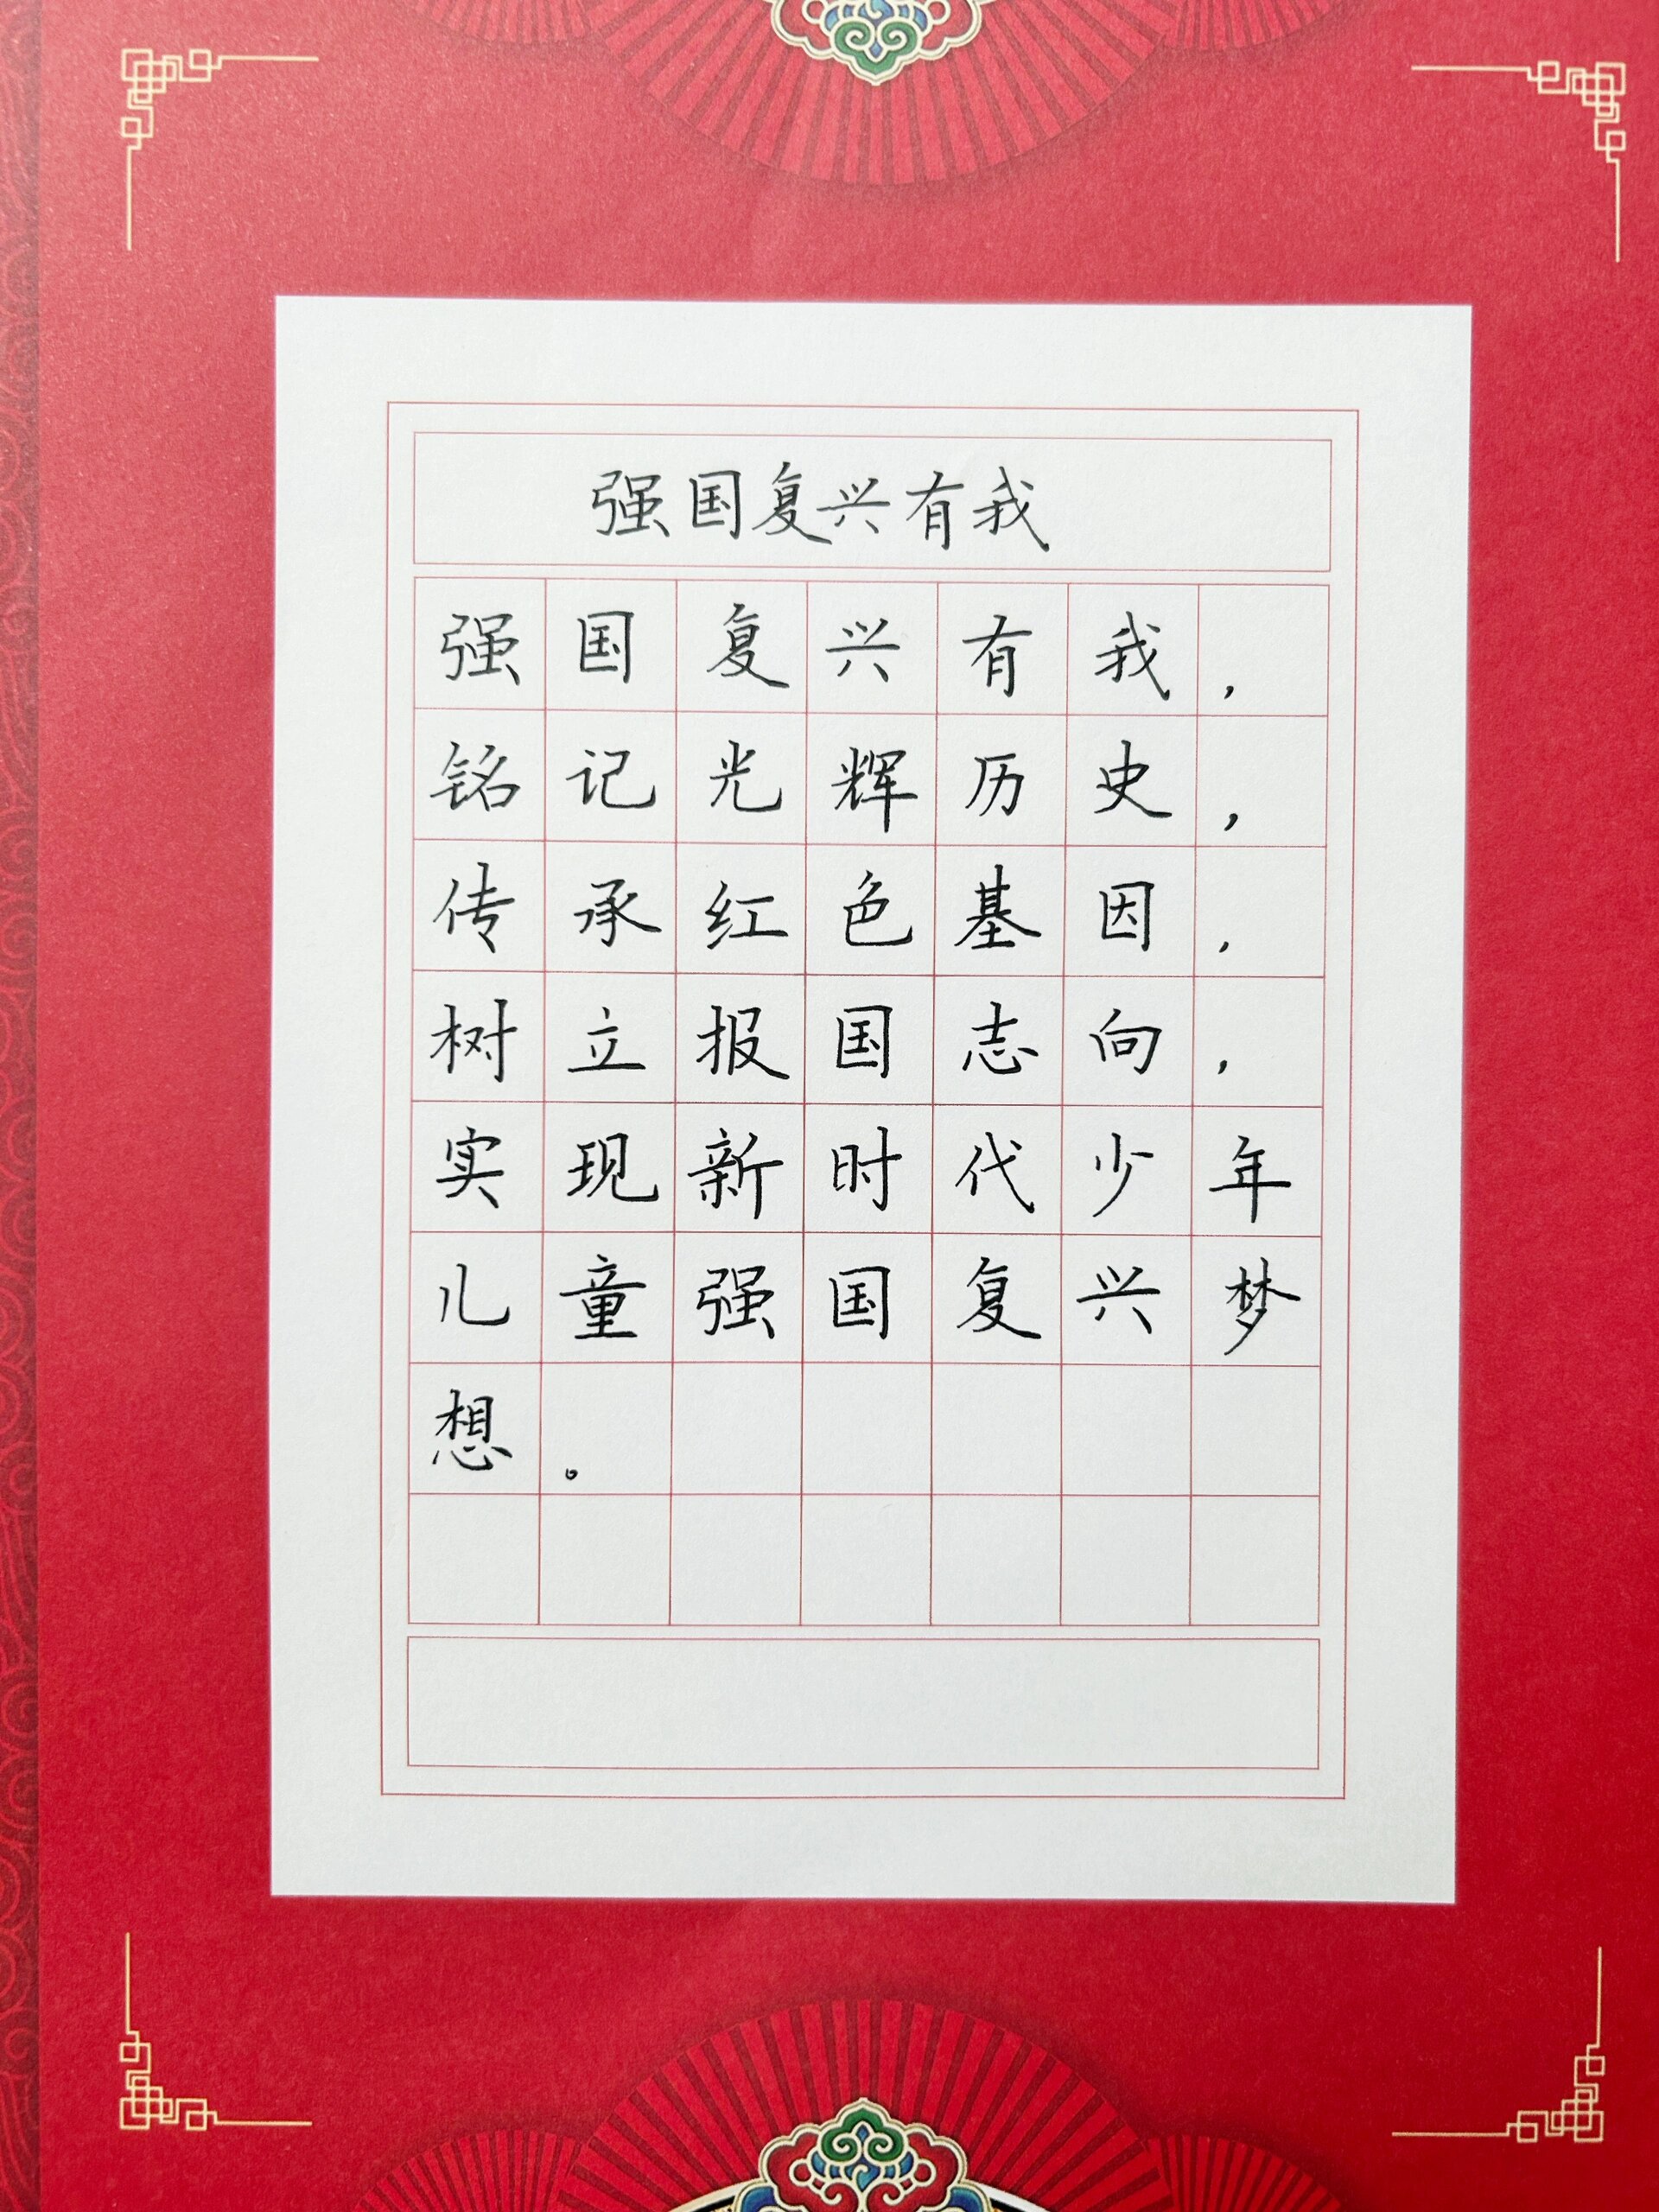 强国复兴有我
强国复兴有我，
铭记光辉历史，
传承红色基因，
树立报国志向，
实现新时代少年
儿童强国复兴梦
想。